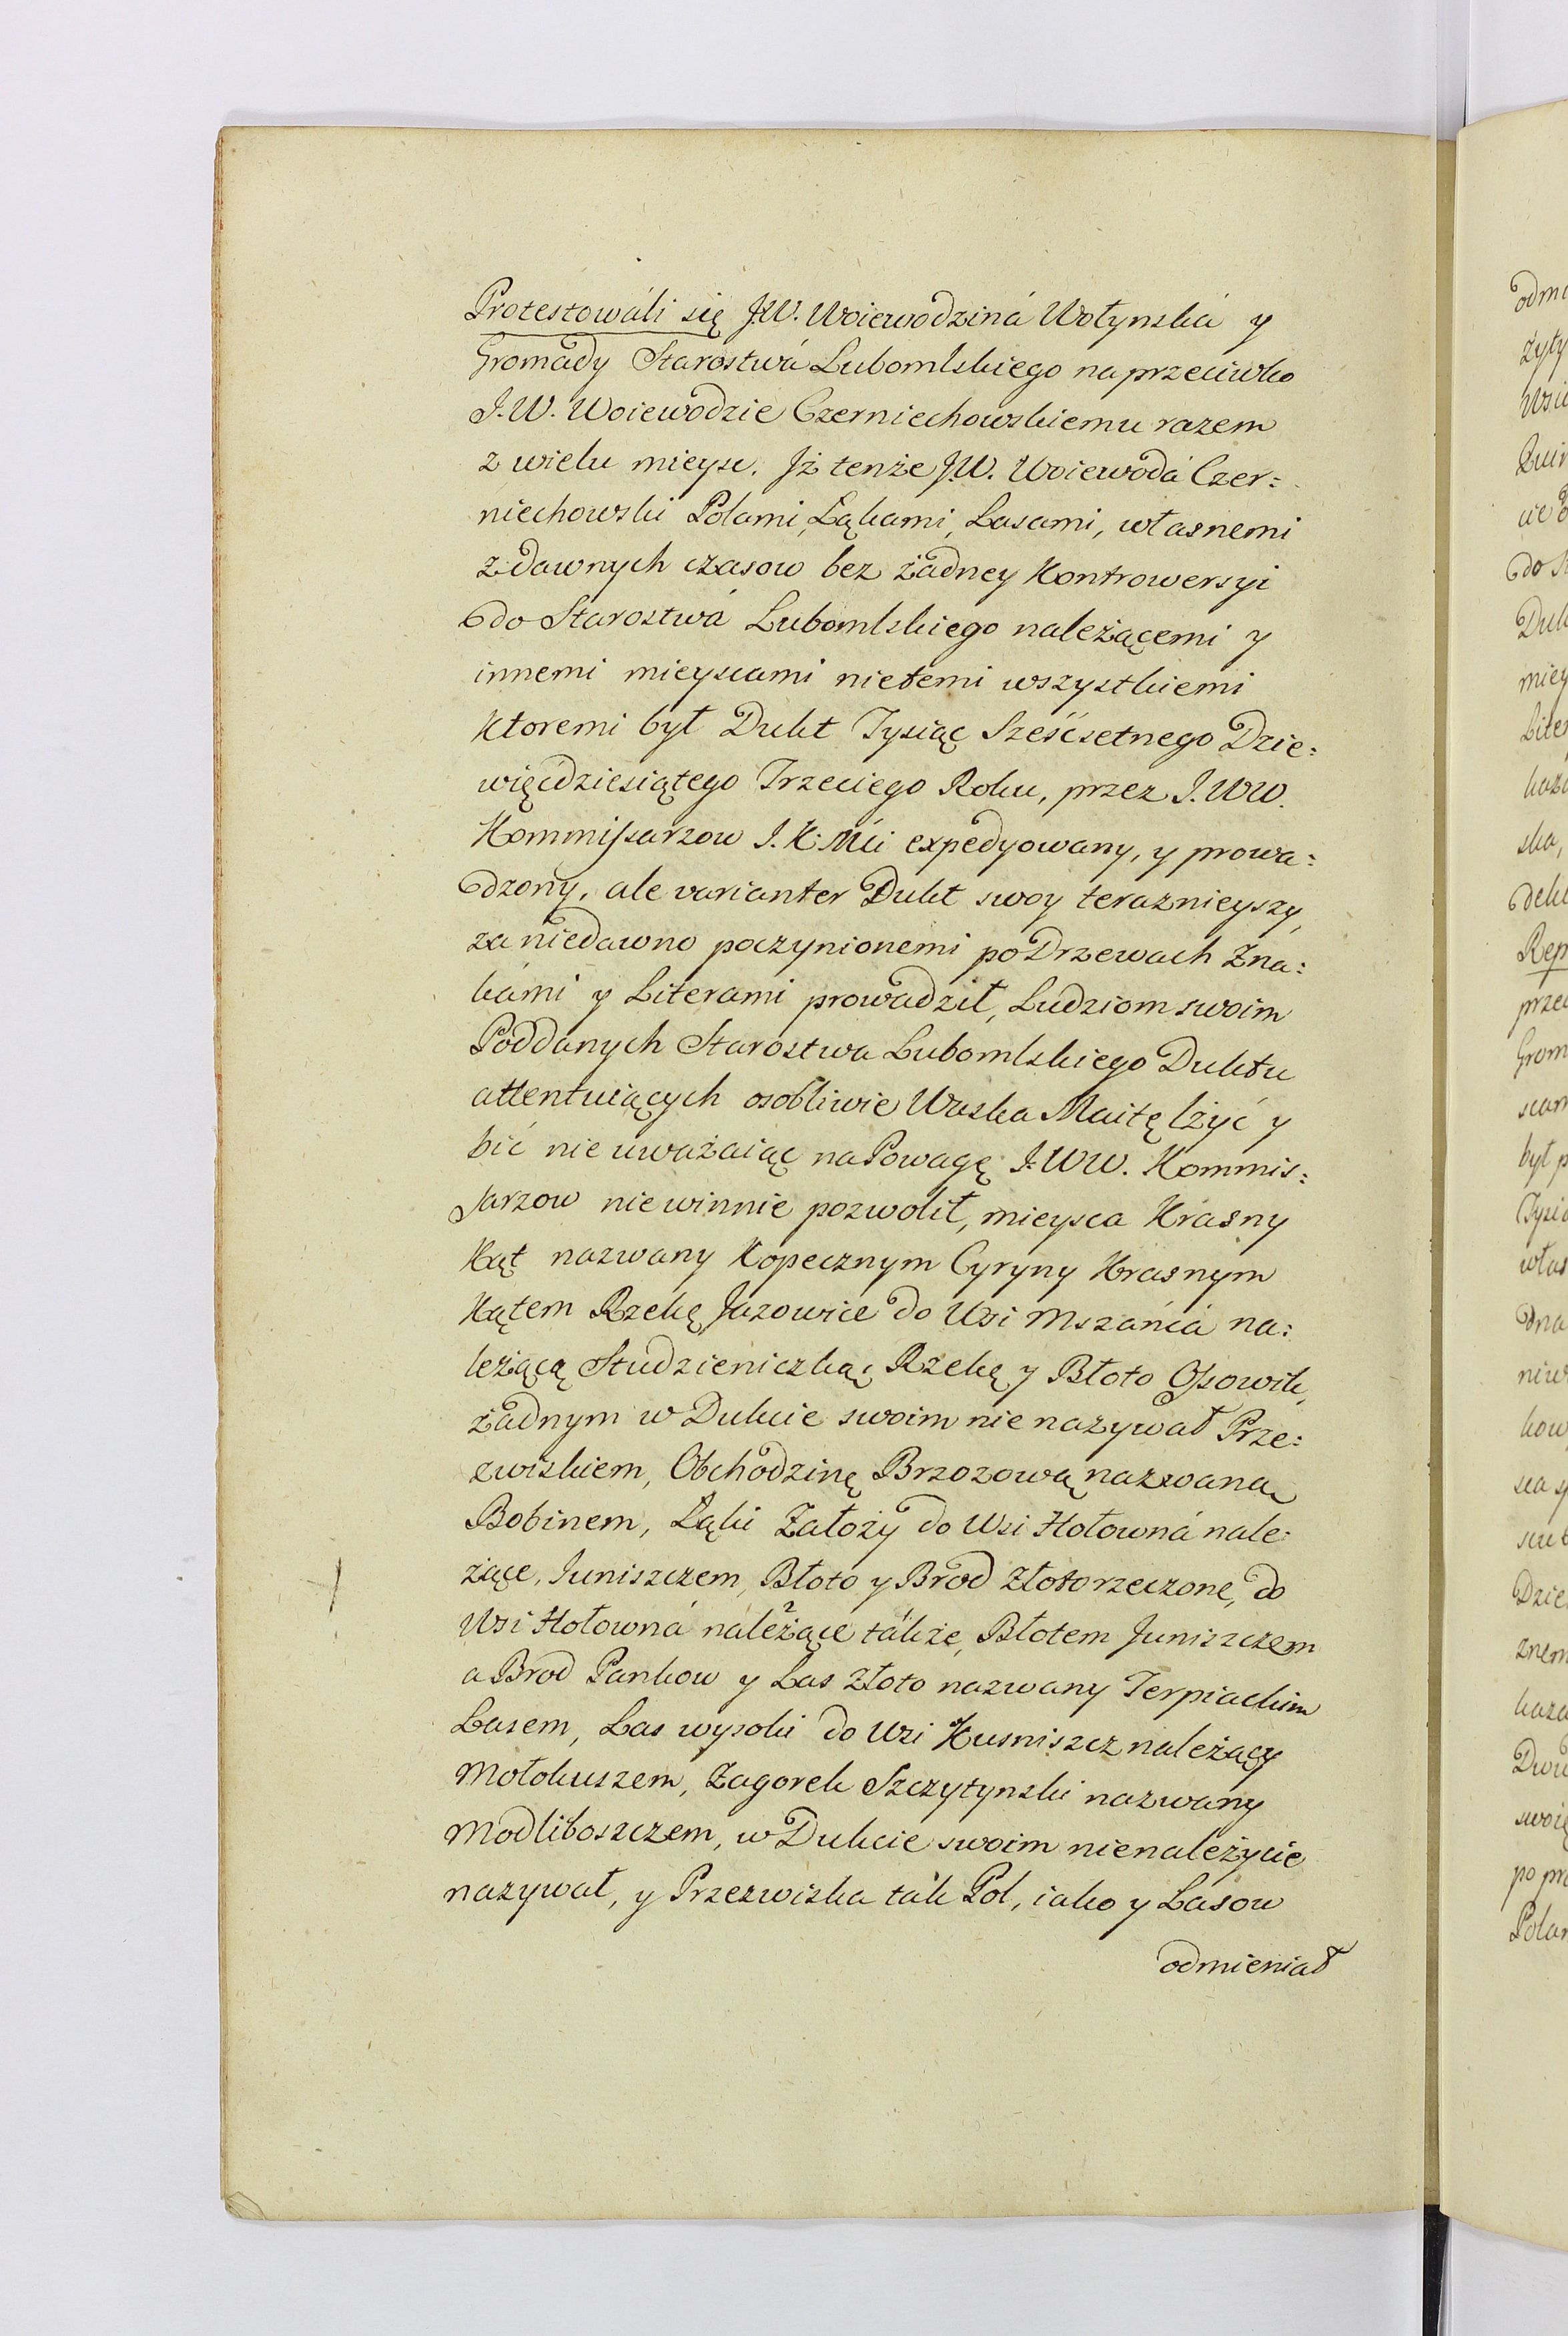 Protestowáli się J.W. Woiewodziná Wołynská y
Gromády Starostwá Lubomlskiego na przeciwko
J.W. Woiewodzie Czerniechowskiemu razem
z wielu mieysc. Jż tenże J.W. Woiewodá Czer:
niechowski Polami, Łąkami, Lasami, własnemi
z dawnych czasow bez żadney Kontrowersyi
do Starostwá Lubomlskiego należącemi y
innemi mieyscami nietemi wszystkiemi
Ktoremi był Dukt Tysiąc Sześćsetnego Dzie:
więćdziesiątego Trzeciego Roku, przez J.WW.
Kommissarzow J.K.Mći expedyowany, y prowa:
dzony, ale varianter Dukt swoy teraznieyszy,
za niedawno poczynionemi po Drzewach Zna:
kámi y Literami prowadził, Ludziom swoim
Poddanych Starostwa Lubomlskiego Duktu
attentuiących osobliwie Waska Maitę lżyć y
bić nie uważaiąc na Powagę J.WW. Kommis:
sarzow niewinnie pozwolił, mieysca Krasny
Kąt nazwany Kopecznym Cyryny Krasnym
Kątem Rzekę Jazowice do Wsi Mszáncá na:
leżącą Studzieniczką, Rzekę y Błoto Ossowik,
żadnym w Dukcie swoim nie nazywał Prze:
zwiskiem, Obchodzinę Brzozową nazwaną
Bobinem, Łąki Założy do Wsi Hołowná nale:
żące, Juniszczem, Błoto y Brod Złotorzeczone, do
Wsi Hołowná należące tákże, Błotem Juniszczem
a Brod Pankow y Las Złoto nazwany Terpiackim
Lasem, Las wysoki do Wsi Kusniszcz należący
Mołokuszem, Zagorek Szczytynski nazwany
Modliboszczem, w Dukcie swoim nienależycie
nazywał, y Przezwiska tak Pol, iako y Lasow
odmieniał